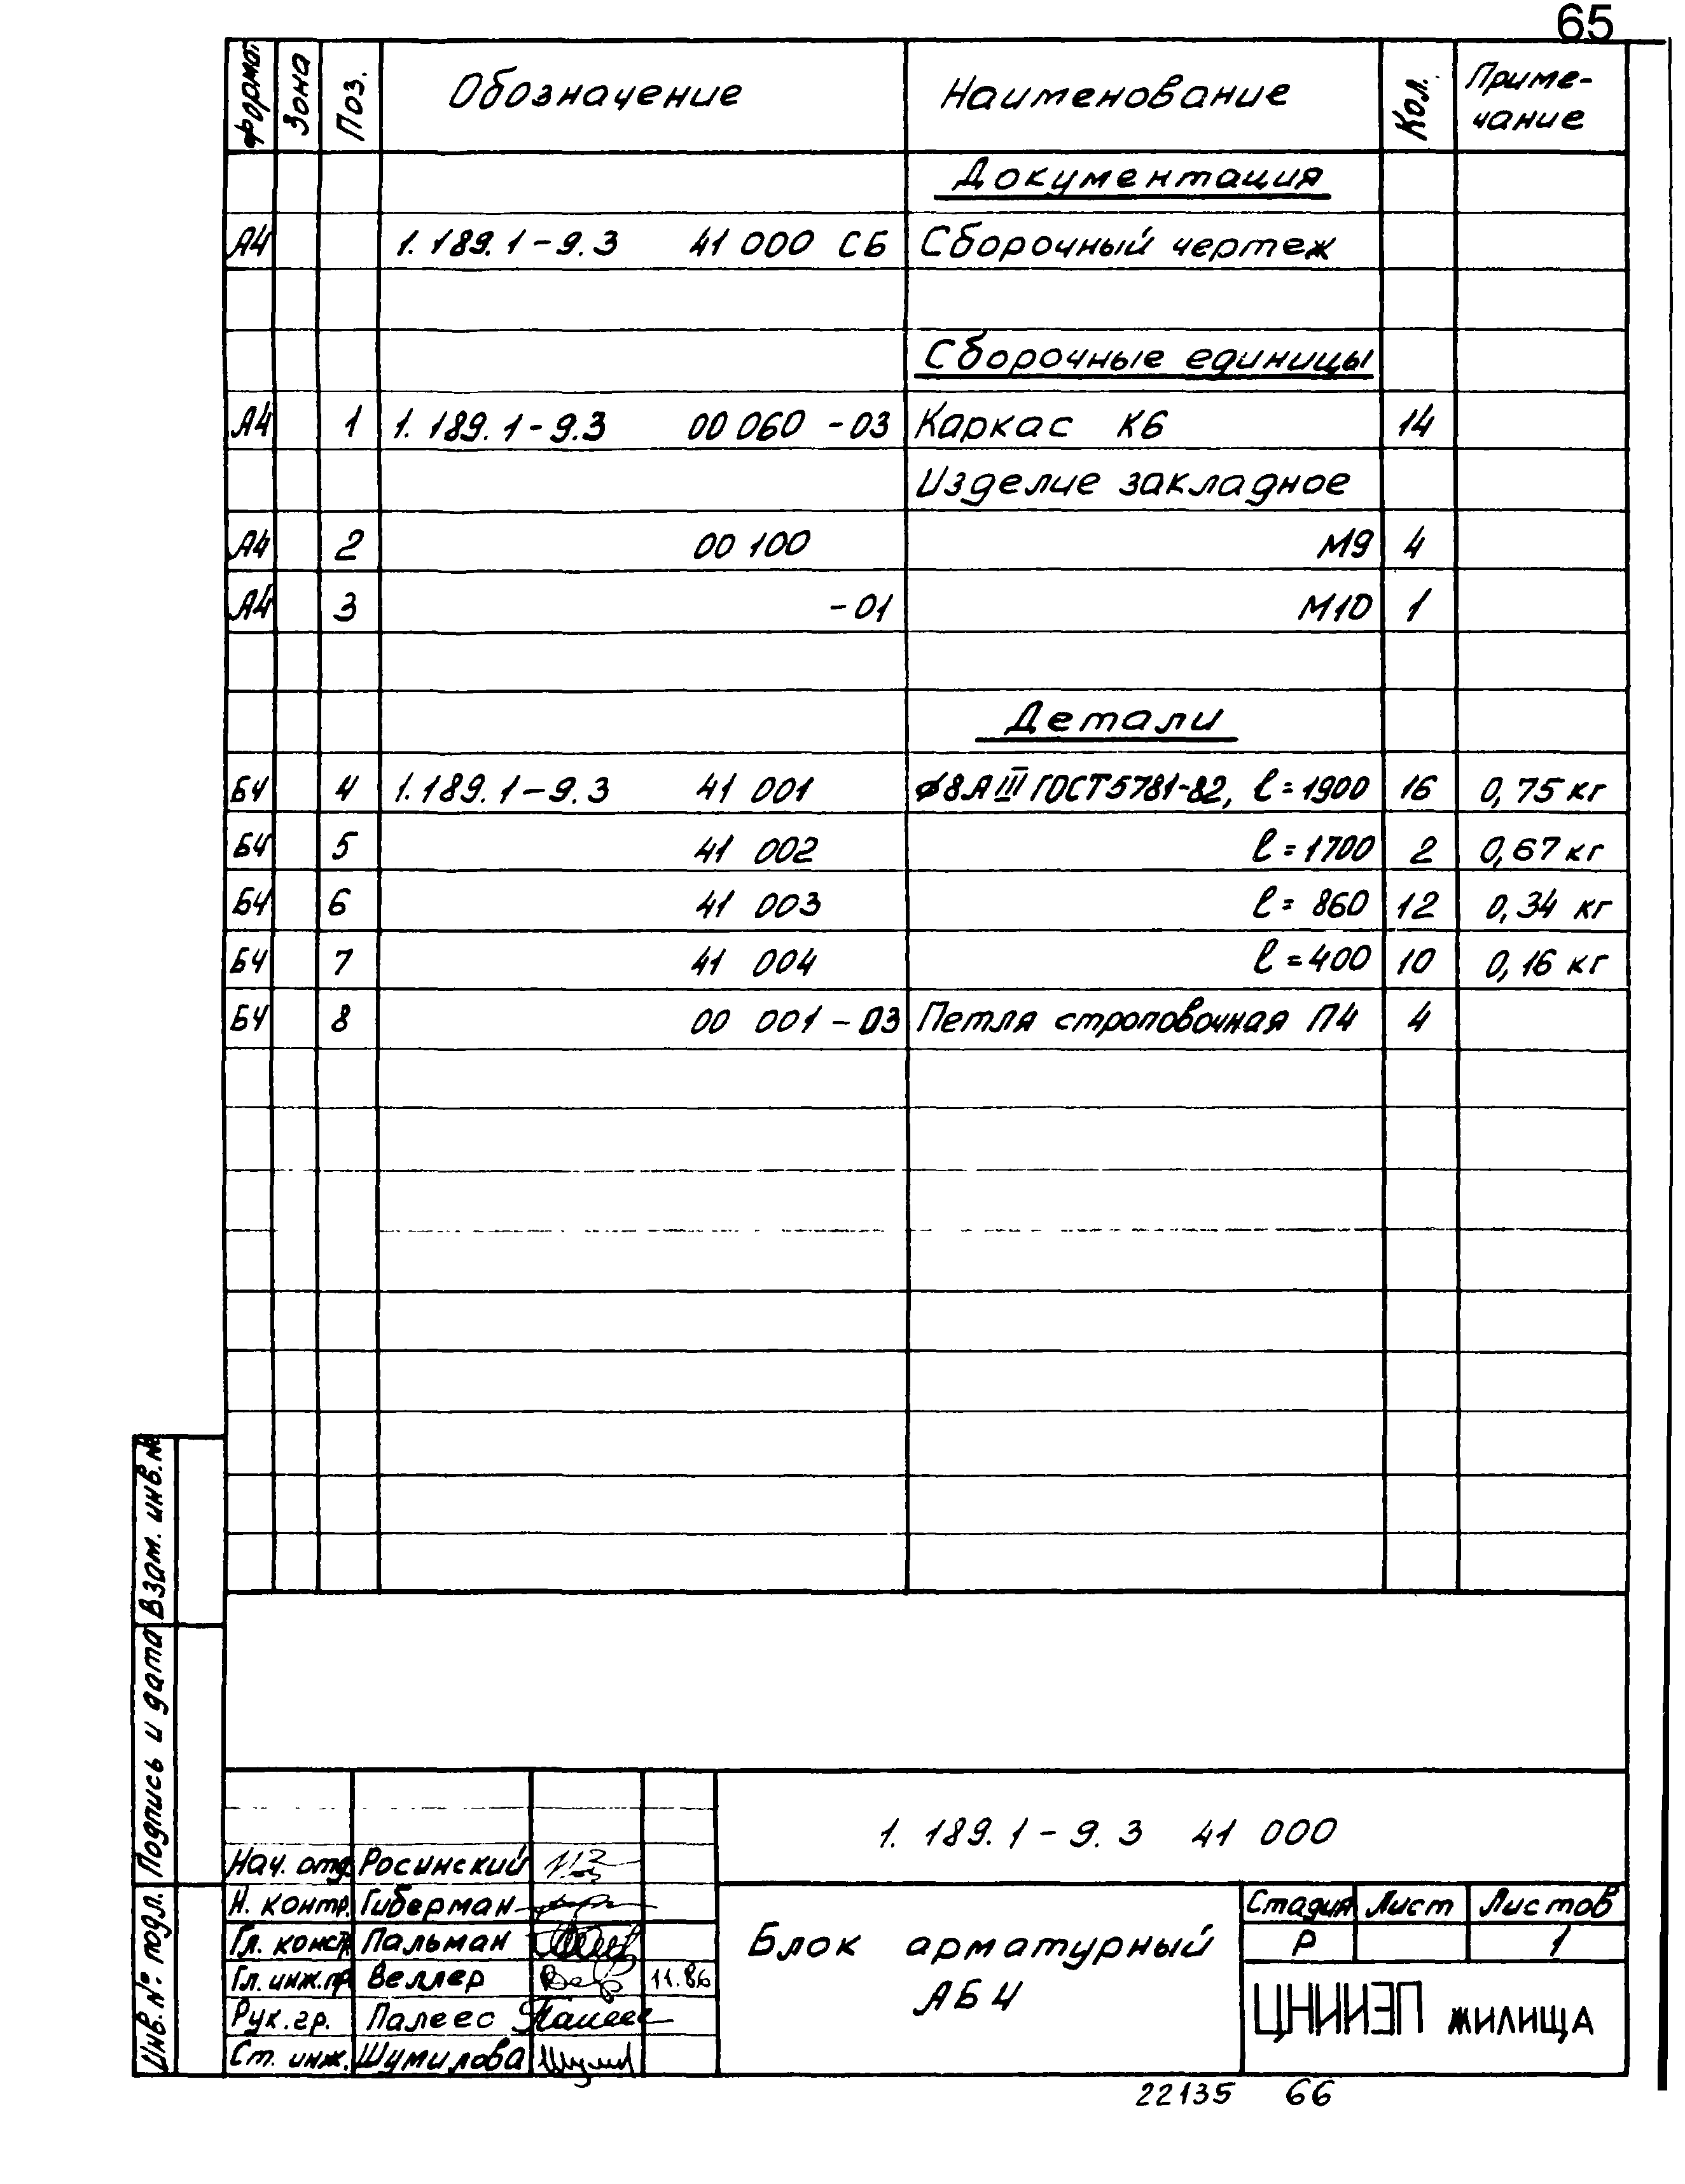 65
Формат Зона Поз. Обозначение Наименование Кол. Приме-
чание
Документация
А4 1.189.1-9.3 41 000 СБ Сборочный чертеж
Сборочные единицы
А4 1 1.189.1-9.3 00 060 -03 Каркас К6 14
Изделие закладное
А4 2 00 100 М9 4
А4 3 -01 М10 1
Детали
БЧ 4 1.189.1-9.3 41 001 ⌀8АIII ГОСТ5781-82, l=1900 16 0,75 кг
БЧ 5 41 002 l=1700 2 0,67 кг
БЧ 6 41 003 l=860 12 0,34 кг
БЧ 7 41 004 l=400 10 0,16 кг
БЧ 8 00 001-03 Петля строповочная П4 4
Взам. инв. №
Подпись и дата
Инв. № подл.
1.189.1-9.3 41 000
Нач. отд. Росинский
Н. контр. Гиберман
Гл. конст. Пальман
Гл. инж.пр Веллер 11.86
Рук. гр. Палеес
Ст. инж. Шумилова
Блок арматурный
АБ4
Стадия Лист Листов
Р 1
ЦНИИЭП жилища
22135 66